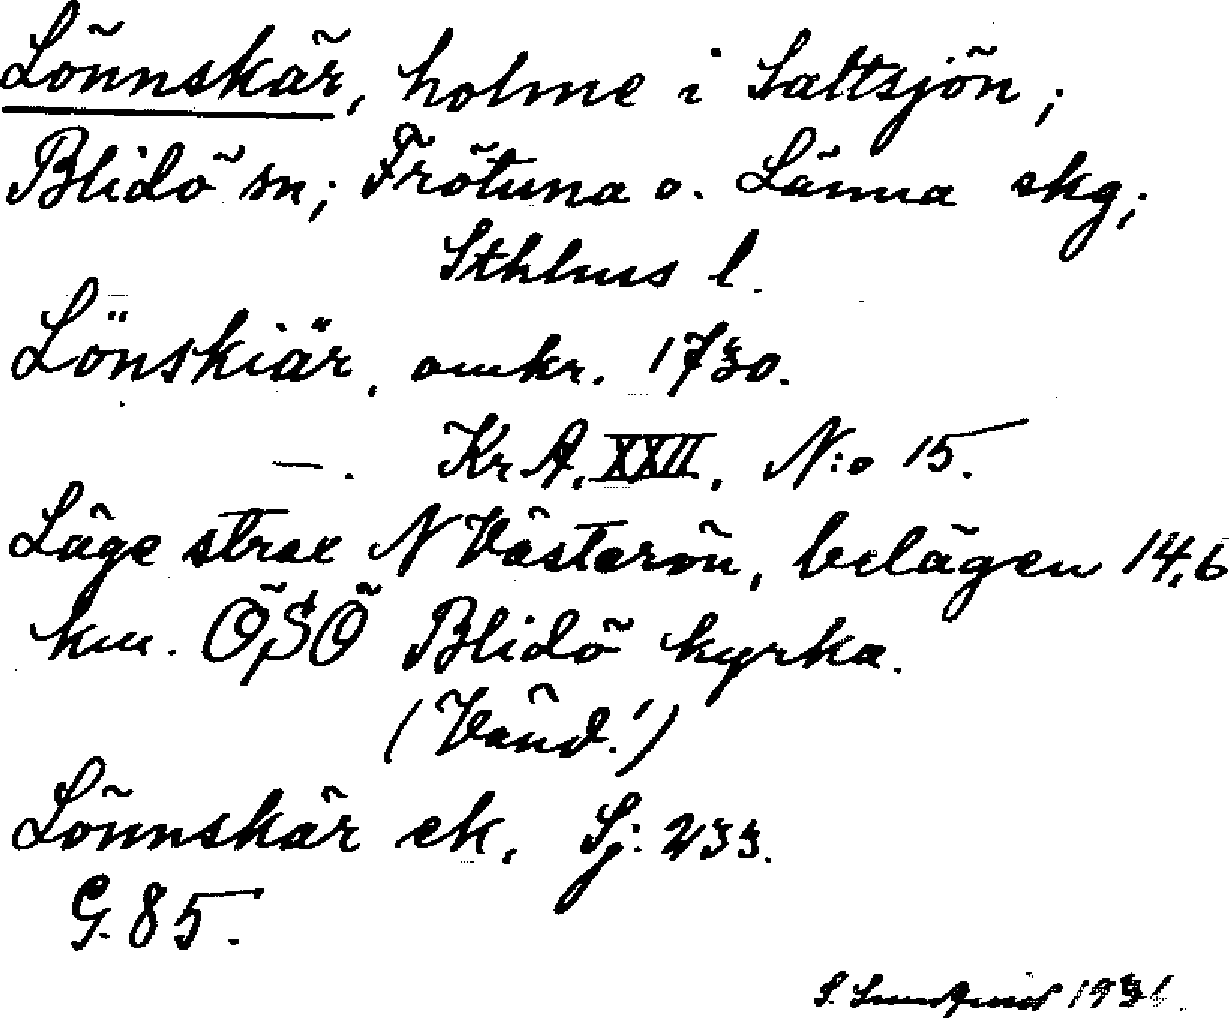 Lönnskär, holme i Saltsjön;
Blidö sn; Frötuna o. Länna skg;
Sthlms l.
Lönskiär, omkr. 1730.
—. Kr.A. XXII, N:o 15.
Läge strax N Västerön, belägen 14,6
km. ÖSÖ Blidö kyrka.
(Vänd!)
Lönnskär ek. Sj: 233.
G. 85.
S. Lundqvist 1931.